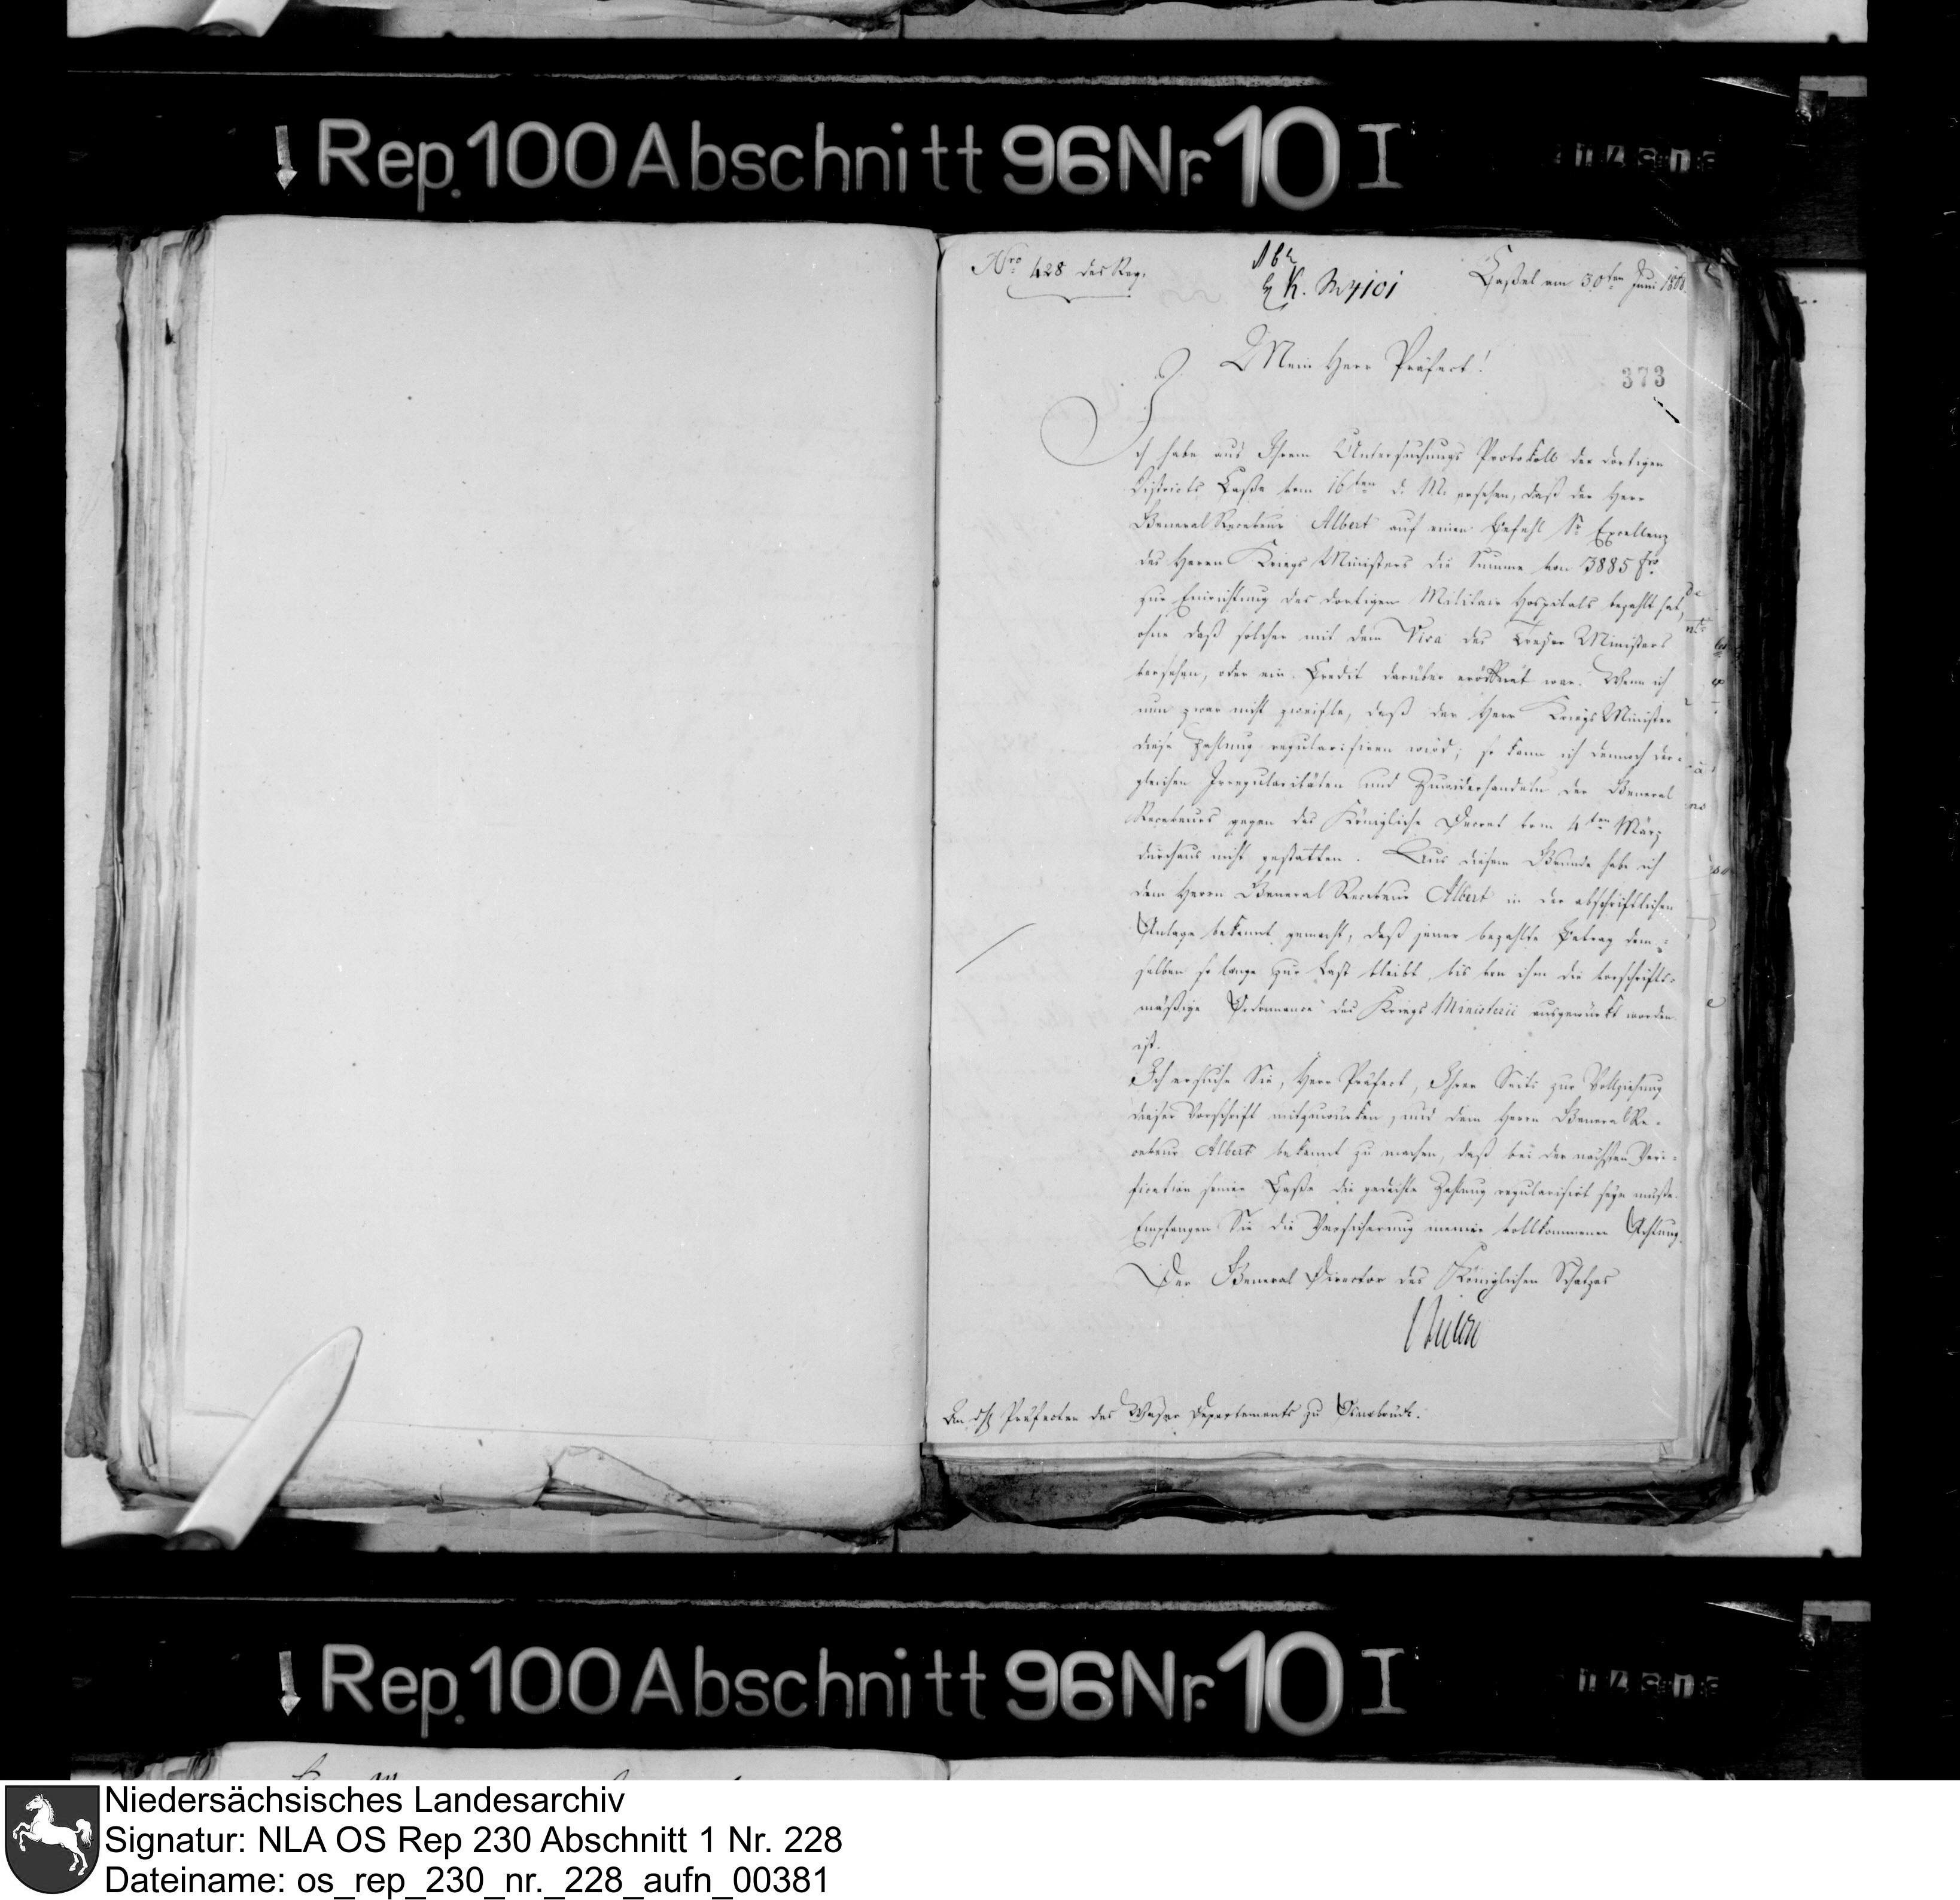 Rep. 100 Abschnitt 96 Nr. 10 I
Nro 428 des Reg.
Caßel am 30ten Juni 1808.
Mein Herr Präfect!
373
Ich habe aus Ihrem Untersuchungs Protokoll der dortigen
Districts Caße vom 16ten d. M. ersehen, daß der Herr
General Receveur Albert auf einen Befehl Sr Excellenz
des Herrn Kriegs Ministers die Summe von 3885 frs
zur Einrichtung des dortigen Militair Hospitals bezahlt hat,
ohne daß solcher mit dem Visa des Tresor Ministers
versehen, oder ein Credit darüber eröffnet war. Wenn ich
nun zwar nicht zweifle, daß der Herr Kriegs Minister
diese Zahlung regularisiren wird; so kann ich dennoch der-
gleichen Irregularitäten und Zuwiderhandeln der General
Receveurs gegen das Königliche Decret vom 4ten März
durchaus nicht gestatten. Aus diesem Grunde habe ich
dem Herrn General Receveur Albert in der abschriftlichen
Anlage bekannt gemacht, daß jener bezahlte Betrag dem-
selben so lange zur Last bleibt, bis von ihm die vorschrifts-
mäßige Ordonnance des Kriegs Ministerii ausgewürkt worden
ist.
Ich ersuche Sie, Herr Präfect, Ihrer Seits zur Vollziehung
dieser Vorschrift mitzuwürken, und dem Herrn General Re-
ceveur Albert bekannt zu machen, daß bei der nächsten Veri-
fication seiner Caße die gedachte Zahlung regularisirt seyn müße.
Empfangen Sie die Versicherung meiner vollkommenen Achtung.
Der General Director des Königlichen Schatzes
An den Präfecten des Weser Departements zu Osnabrück.
Rep. 100 Abschnitt 96 Nr. 10 I
Niedersächsisches Landesarchiv
Signatur: NLA OS Rep 230 Abschnitt 1 Nr. 228
Dateiname: os_rep_230_nr._228_aufn_00381